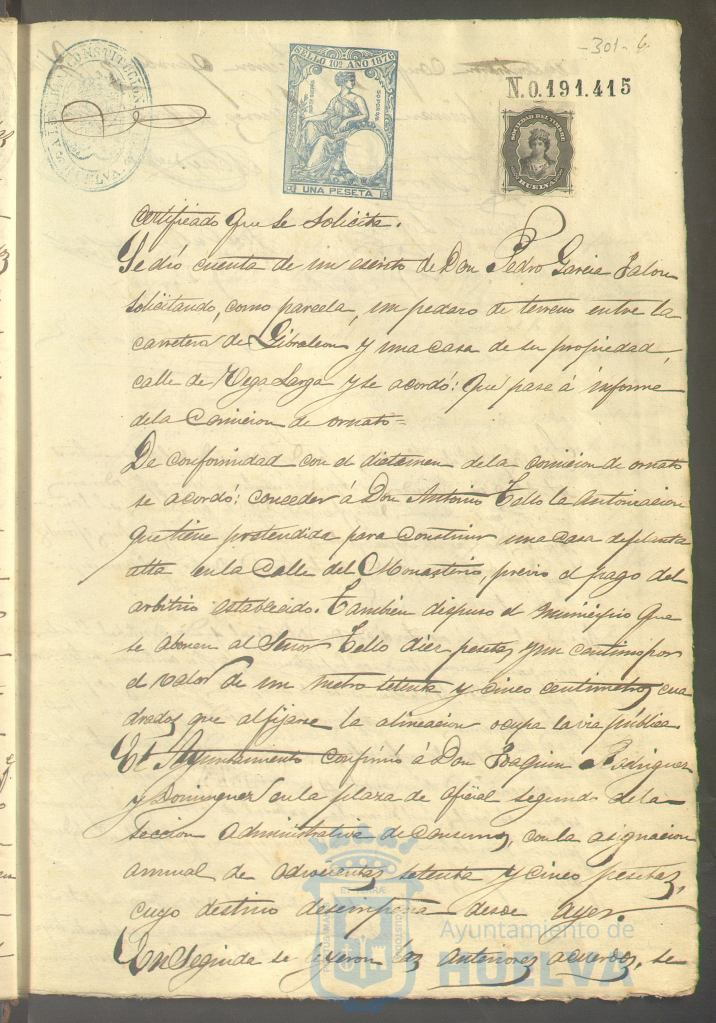 -301- 6
SELLO 10º AÑO 1876
N.0.191.415
SOCIEDAD DEL TIMBRE
HUELVA
UNA PESETA
CONSTITUCION
HUELVA
certificado que se solicita.
Se dió cuenta de un escrito de Don Pedro Garcia Jalon
solicitando, como parcela, un pedazo de terreno entre la
carretera de Gibraleon y una casa de su propiedad,
calle de Vega Larga y se acordó: Que pase á informe
dela Comision de ornato=
De conformidad con el dictamen dela comision de ornato
se acordó: conceder á Don Antonio Tello la autorizacion
que tiene pretendida para construir una casa de planta
alta en la Calle del Monasterio, previo el pago del
arbitrio establecido. Tambien dispuso el Municipio que
se abonen al Señor Tello diez pesetas y un centimo por
el valor de un metro setenta y cinco centimetros cua
drados que al fijarse la alineacion ocupa la via pública.
El Ayuntamiento confirió á Don Joaquin Rodriguez
y Dominguez en la plaza de oficial segundo dela
seccion administrativa de consumos, con la asignacion
annual de setenta y cinco pesetas,
cuyo destino desempeña desde ayer.
En seguida se leyeron los anteriores acuerdos, se
Ayuntamiento de
HUELVA